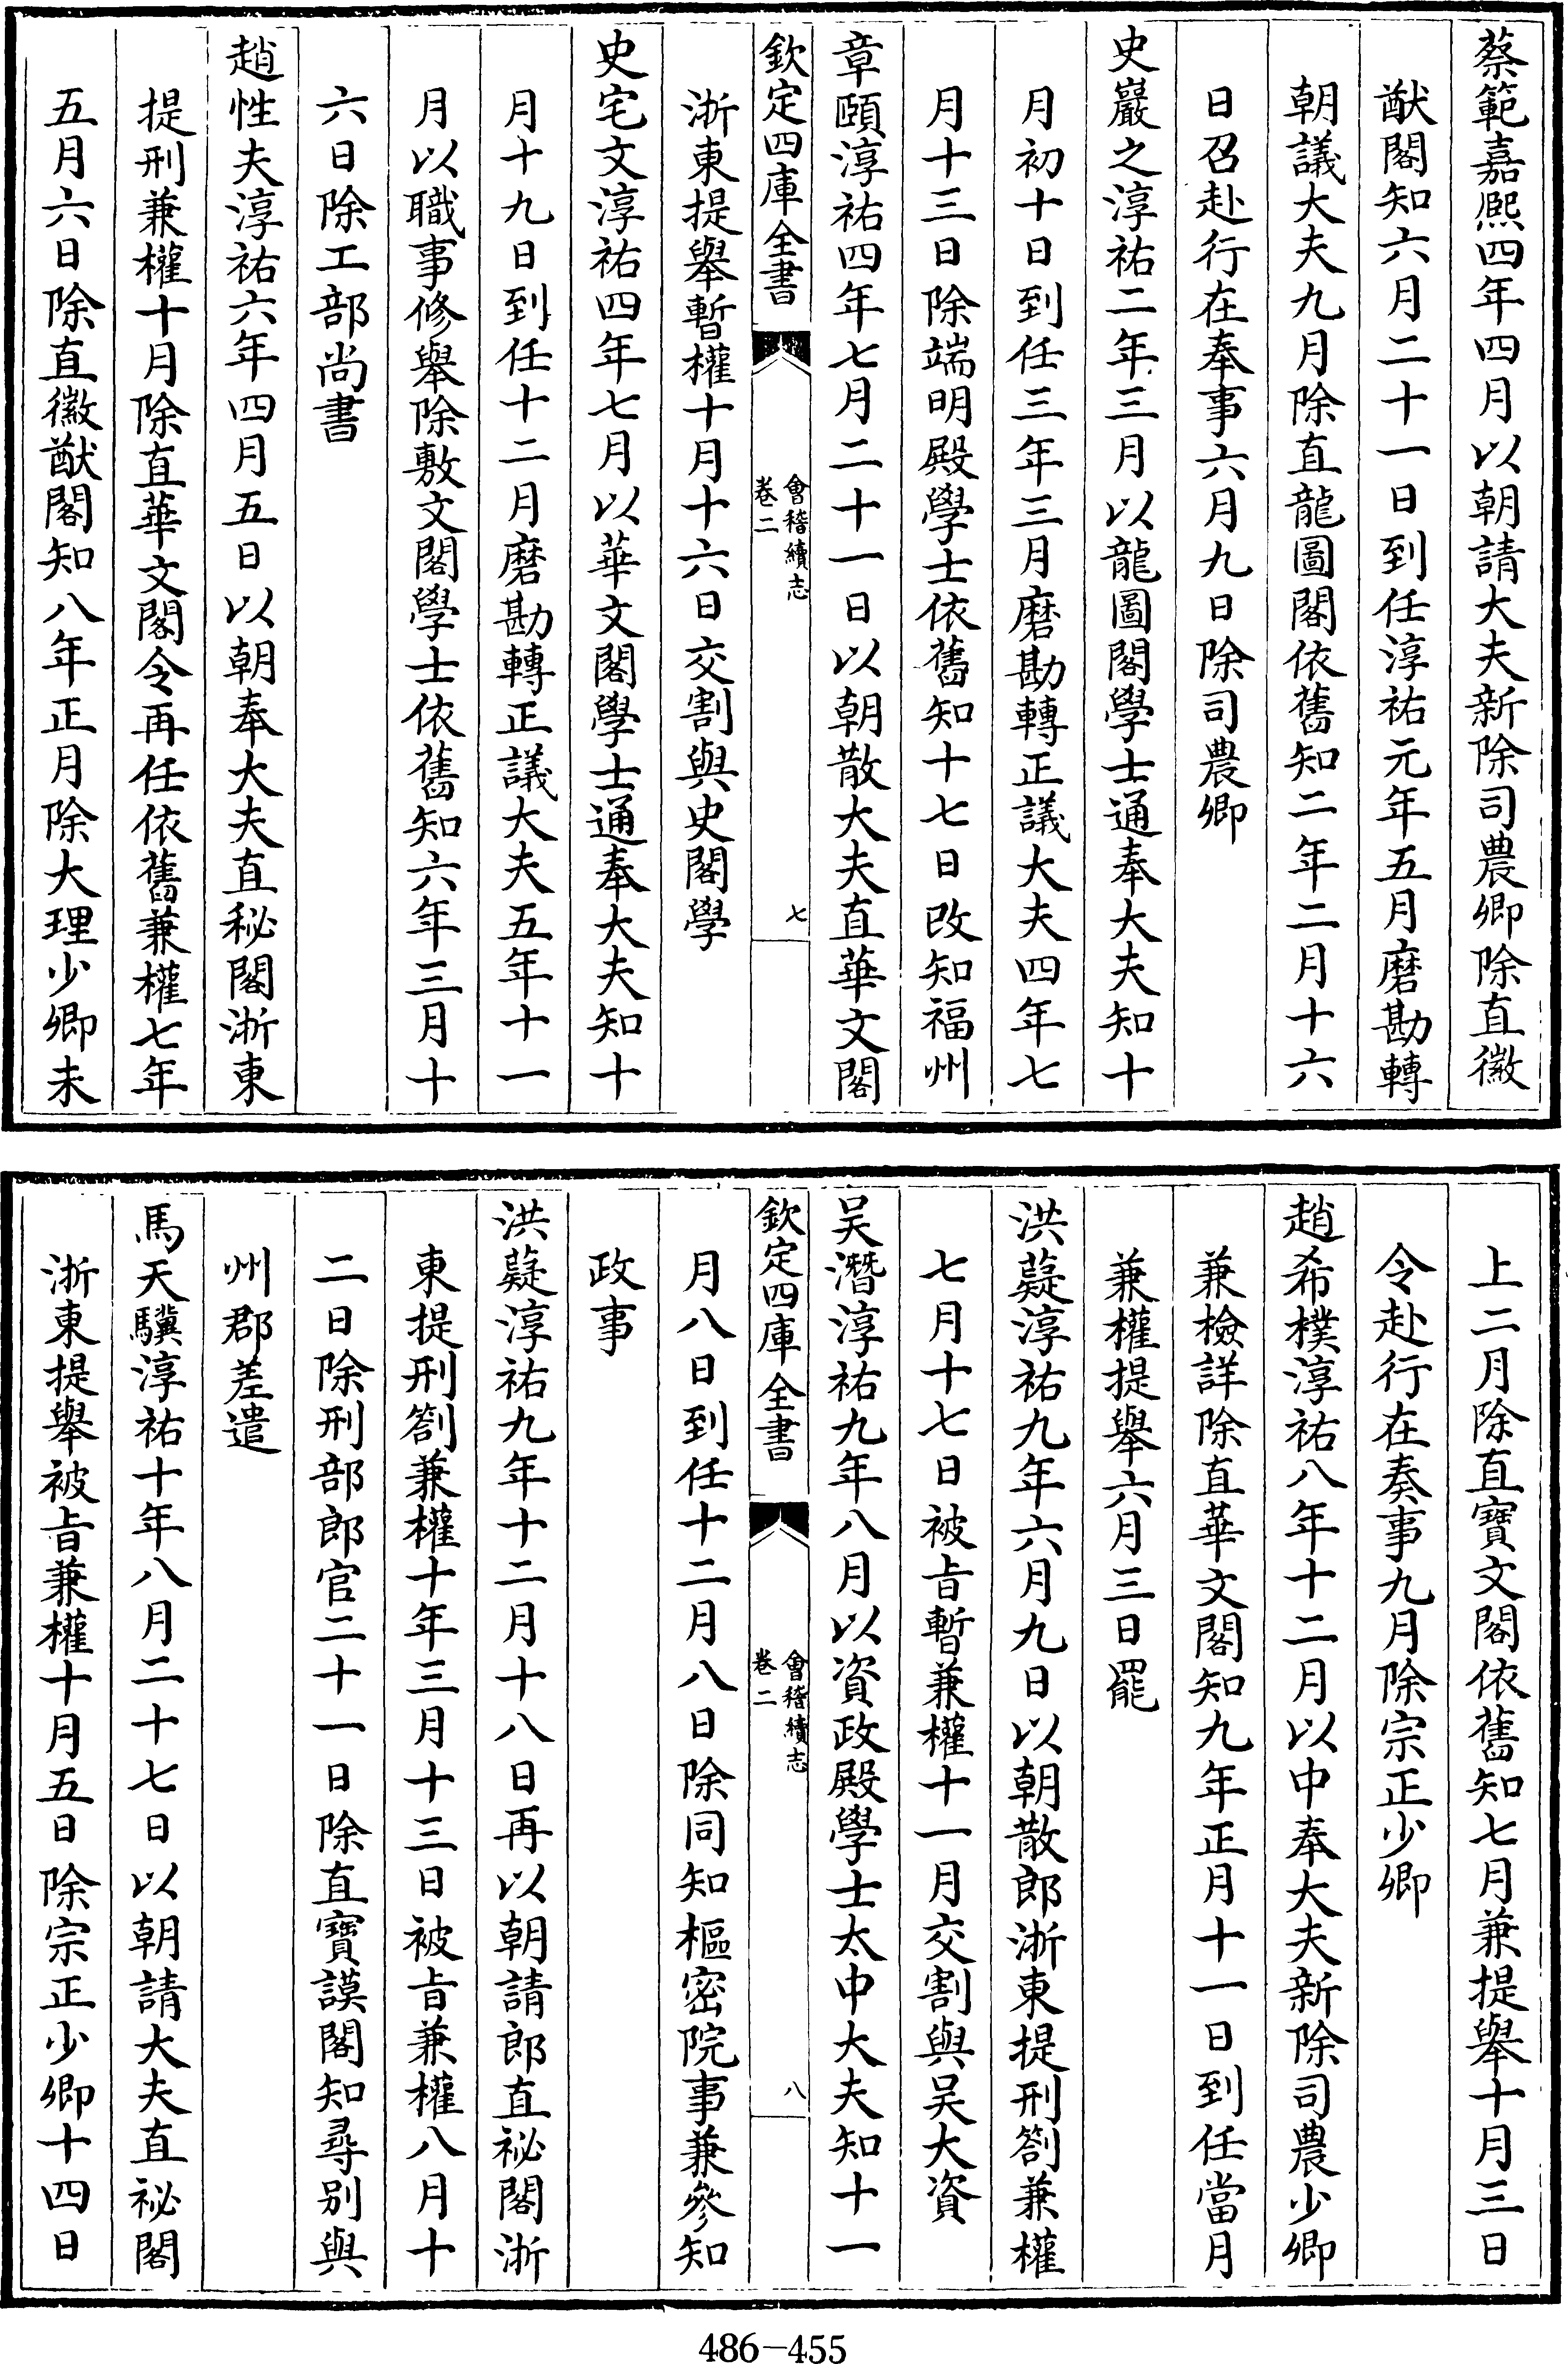 蔡範嘉熙四年四月以朝請大夫新除司農卿除直徽
猷閣知六月二十一日到任淳祐元年五月磨勘轉
朝議大夫九月除直龍圖閣依舊知二年二月十六
日召赴行在奉事六月九日除司農卿
史巖之淳祐二年三月以龍圖閣學士通奉大夫知十
月初十日到任三年三月磨勘轉正議大夫四年七
月十三日除端明殿學士依舊知十七日改知福州
章頤淳祐四年七月二十一日以朝散大夫直華文閣
欽定四庫全書
會稽續志
卷二
七
浙東提舉暫權十月十六日交割與史閣學
史宅文淳祐四年七月以華文閣學士通奉大夫知十
月十九日到任十二月磨勘轉正議大夫五年十一
月以職事修舉除敷文閣學士依舊知六年三月十
六日除工部尚書
趙性夫淳祐六年四月五日以朝奉大夫直秘閣浙東
提刑兼權十月除直華文閣令再任依舊兼權七年
五月六日除直徽猷閣知八年正月除大理少卿未
上二月除直寶文閣依舊知七月兼提舉十月三日
令赴行在奏事九月除宗正少卿
趙希樸淳祐八年十二月以中奉大夫新除司農少卿
兼檢詳除直華文閣知九年正月十一日到任當月
兼權提舉六月三日罷
洪薿淳祐九年六月九日以朝散郎浙東提刑劄兼權
七月十七日被㫖暫兼權十一月交割與吳大資
吳潛淳祐九年八月以資政殿學士太中大夫知十一
欽定四庫全書
會稽續志
卷二
八
月八日到任十二月八日除同知樞密院事兼參知
政事
洪薿淳祐九年十二月十八日再以朝請郎直祕閣浙
東提刑劄兼權十年三月十三日被㫖兼權八月十
二日除刑部郎官二十一日除直寶謨閣知尋別與
州郡差遣
馬天驥淳祐十年八月二十七日以朝請大夫直祕閣
浙東提舉被㫖兼權十月五日除宗正少卿十四日
486-455